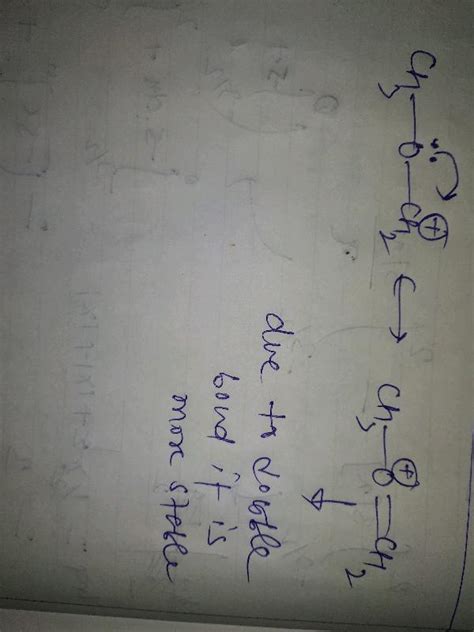 CH3—O—CH2 ⊕ ⟷ CH3—O⊕=CH2
due to double
bond it is
more stable